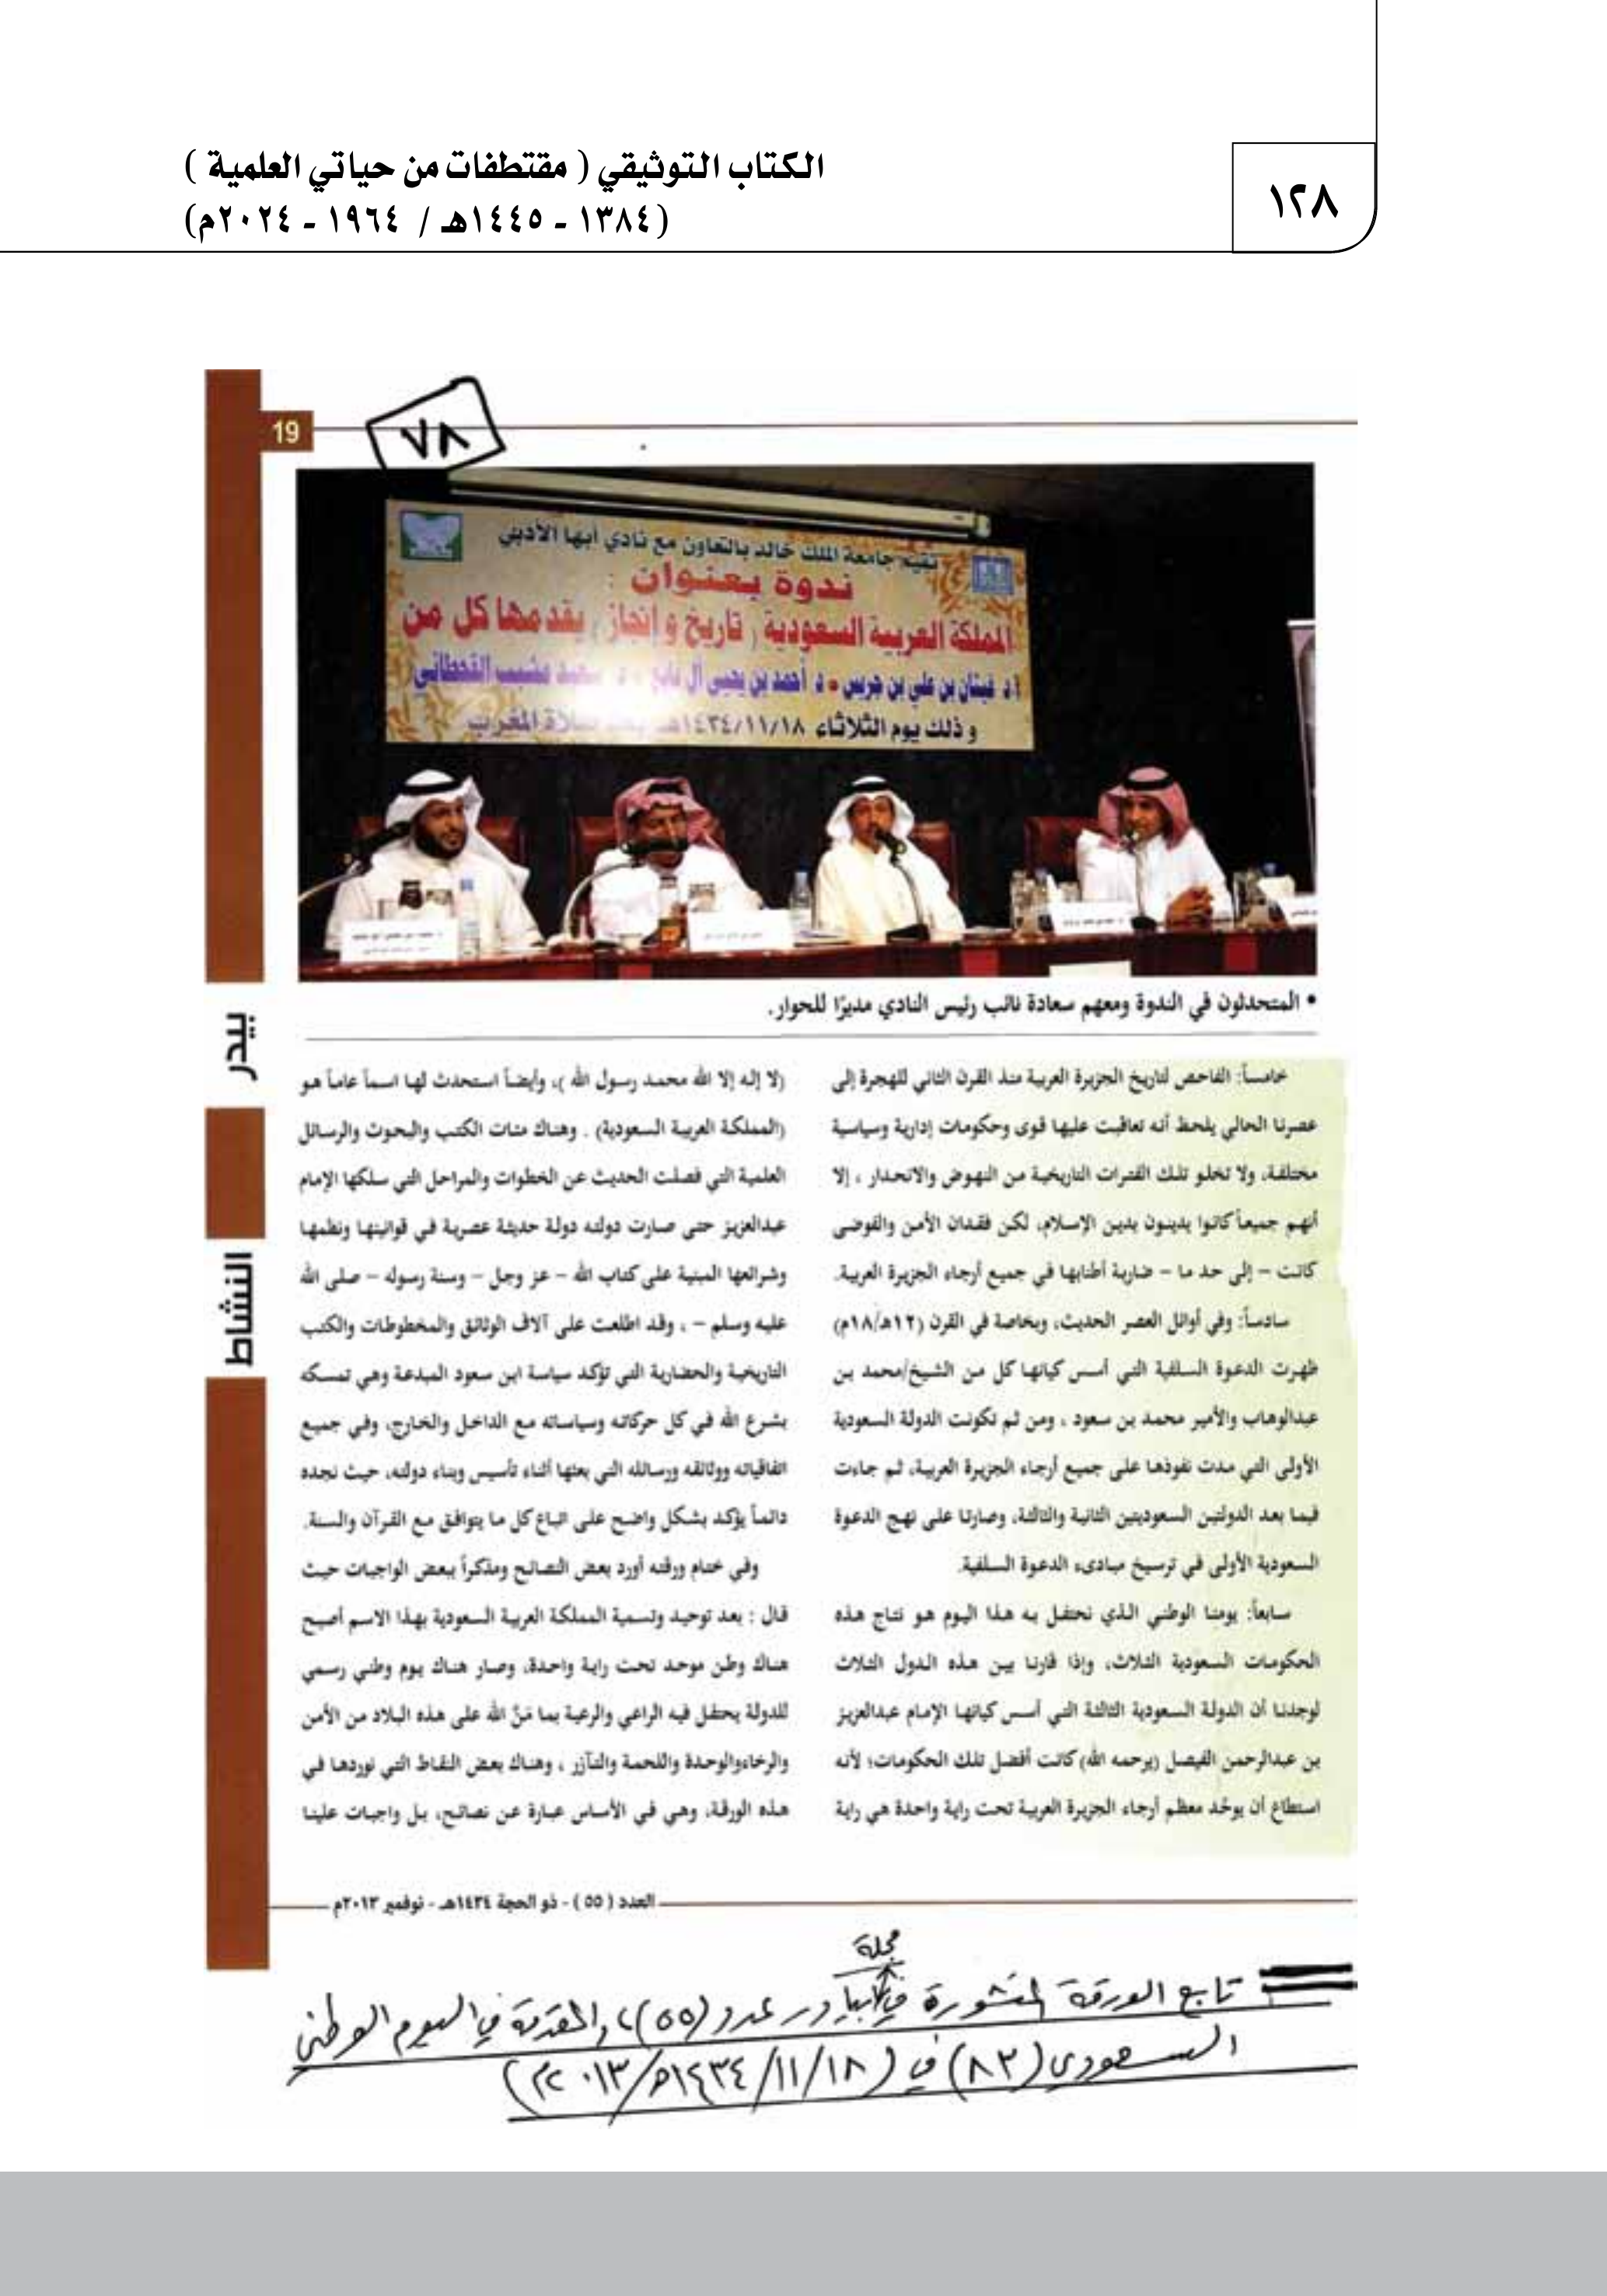 الكتاب التوثيقي ( مقتطفات من حياتي العلمية )
(١٣٨٤ - ١٤٤٥هـ / ١٩٦٤ - ٢٠٢٤م)
١٢٨
19
٧٨
تقيم جامعة الملك خالد بالتعاون مع نادي أبها الأدبي
ندوة بعنوان :
المملكة العربية السعودية ( تاريخ و إنجاز ) يقدمها كل من
أ.د غيثان بن علي بن جريس - د أحمد بن يحيى آل - د. سعيد مشبب القحطاني
و ذلك يوم الثلاثاء ١٤٣٤/١١/١٨هـ بعد صلاة المغرب
• المتحدثون في الندوة ومعهم سعادة نائب رئيس النادي مديرًا للحوار.
خامساً: الفاحص لتاريخ الجزيرة العربية منذ القرن الثاني للهجرة إلى
عصرنا الحالي يلحظ أنه تعاقبت عليها قوى وحكومات إدارية وسياسية
مختلفة، ولا تخلو تلك الفترات التاريخية من النهوض والانحدار ، إلا
أنهم جميعاً كانوا يدينون بدين الإسلام، لكن فقدان الأمن والفوضى
كانت – إلى حد ما – ضاربة أطنابها في جميع أرجاء الجزيرة العربية.
سادساً: وفي أوائل العصر الحديث، وبخاصة في القرن (١٢هـ/١٨م)
ظهرت الدعوة السلفية التي أسس كيانها كل من الشيخ/محمد بن
عبدالوهاب والأمير محمد بن سعود ، ومن ثم تكونت الدولة السعودية
الأولى التي مدت نفوذها على جميع أرجاء الجزيرة العربية، ثم جاءت
فيما بعد الدولتين السعوديتين الثانية والثالثة، وصارتا على نهج الدعوة
السعودية الأولى في ترسيخ مبادىء الدعوة السلفية.
سابعاً: يومنا الوطني الذي نحتفل به هذا اليوم هو نتاج هذه
الحكومات السعودية الثلاث، وإذا قارنا بين هذه الدول الثلاث
لوجدنا أن الدولة السعودية الثالثة التي أسس كيانها الإمام عبدالعزيز
بن عبدالرحمن الفيصل (يرحمه الله) كانت أفضل تلك الحكومات؛ لأنه
استطاع أن يوحّد معظم أرجاء الجزيرة العربية تحت راية واحدة هي راية
(لا إله إلا الله محمد رسول الله )، وأيضاً استحدث لها اسماً عاماً هو
(المملكة العربية السعودية) . وهناك مئات الكتب والبحوث والرسائل
العلمية التي فصلت الحديث عن الخطوات والمراحل التي سلكها الإمام
عبدالعزيز حتى صارت دولته دولة حديثة عصرية في قوانينها ونظمها
وشرائعها المبنية على كتاب الله – عز وجل – وسنة رسوله – صلى الله
عليه وسلم – ، وقد اطلعت على آلاف الوثائق والمخطوطات والكتب
التاريخية والحضارية التي تؤكد سياسة ابن سعود المبدعة وهي تمسكه
بشرع الله في كل حركاته وسياساته مع الداخل والخارج، وفي جميع
اتفاقياته ووثائقه ورسائله التي بعثها أثناء تأسيس وبناء دولته، حيث نجده
دائماً يؤكد بشكل واضح على اتباع كل ما يتوافق مع القرآن والسنة.
وفي ختام ورقته أورد بعض النصائح ومذكراً ببعض الواجبات حيث
قال : بعد توحيد وتسمية المملكة العربية السعودية بهذا الاسم أصبح
هناك وطن موحد تحت راية واحدة، وصار هناك يوم وطني رسمي
للدولة يحتفل فيه الراعي والرعية بما مَنَّ الله على هذه البلاد من الأمن
والرخاءوالوحدة واللحمة والتآزر ، وهناك بعض النقاط التي نوردها في
هذه الورقة، وهي في الأساس عبارة عن نصائح، بل واجبات علينا
بيدر
النشاط
العدد ( ٥٥ ) - ذو الحجة ١٤٣٤هـ - نوفمبر ٢٠١٣م
مجلة
تابع الورقة المنشورة في بيادر عدد (٥٥)، والمقدمة في اليوم الوطني
السعودي (٨٣) في (١٤٣٤/١١/١٨هـ/٢٠١٣م)